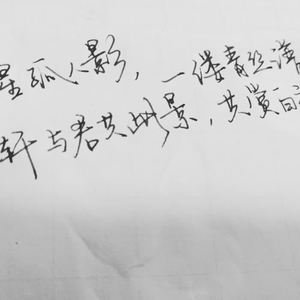 星孤人影，一缕青丝满
轩与君共此景，共赏百